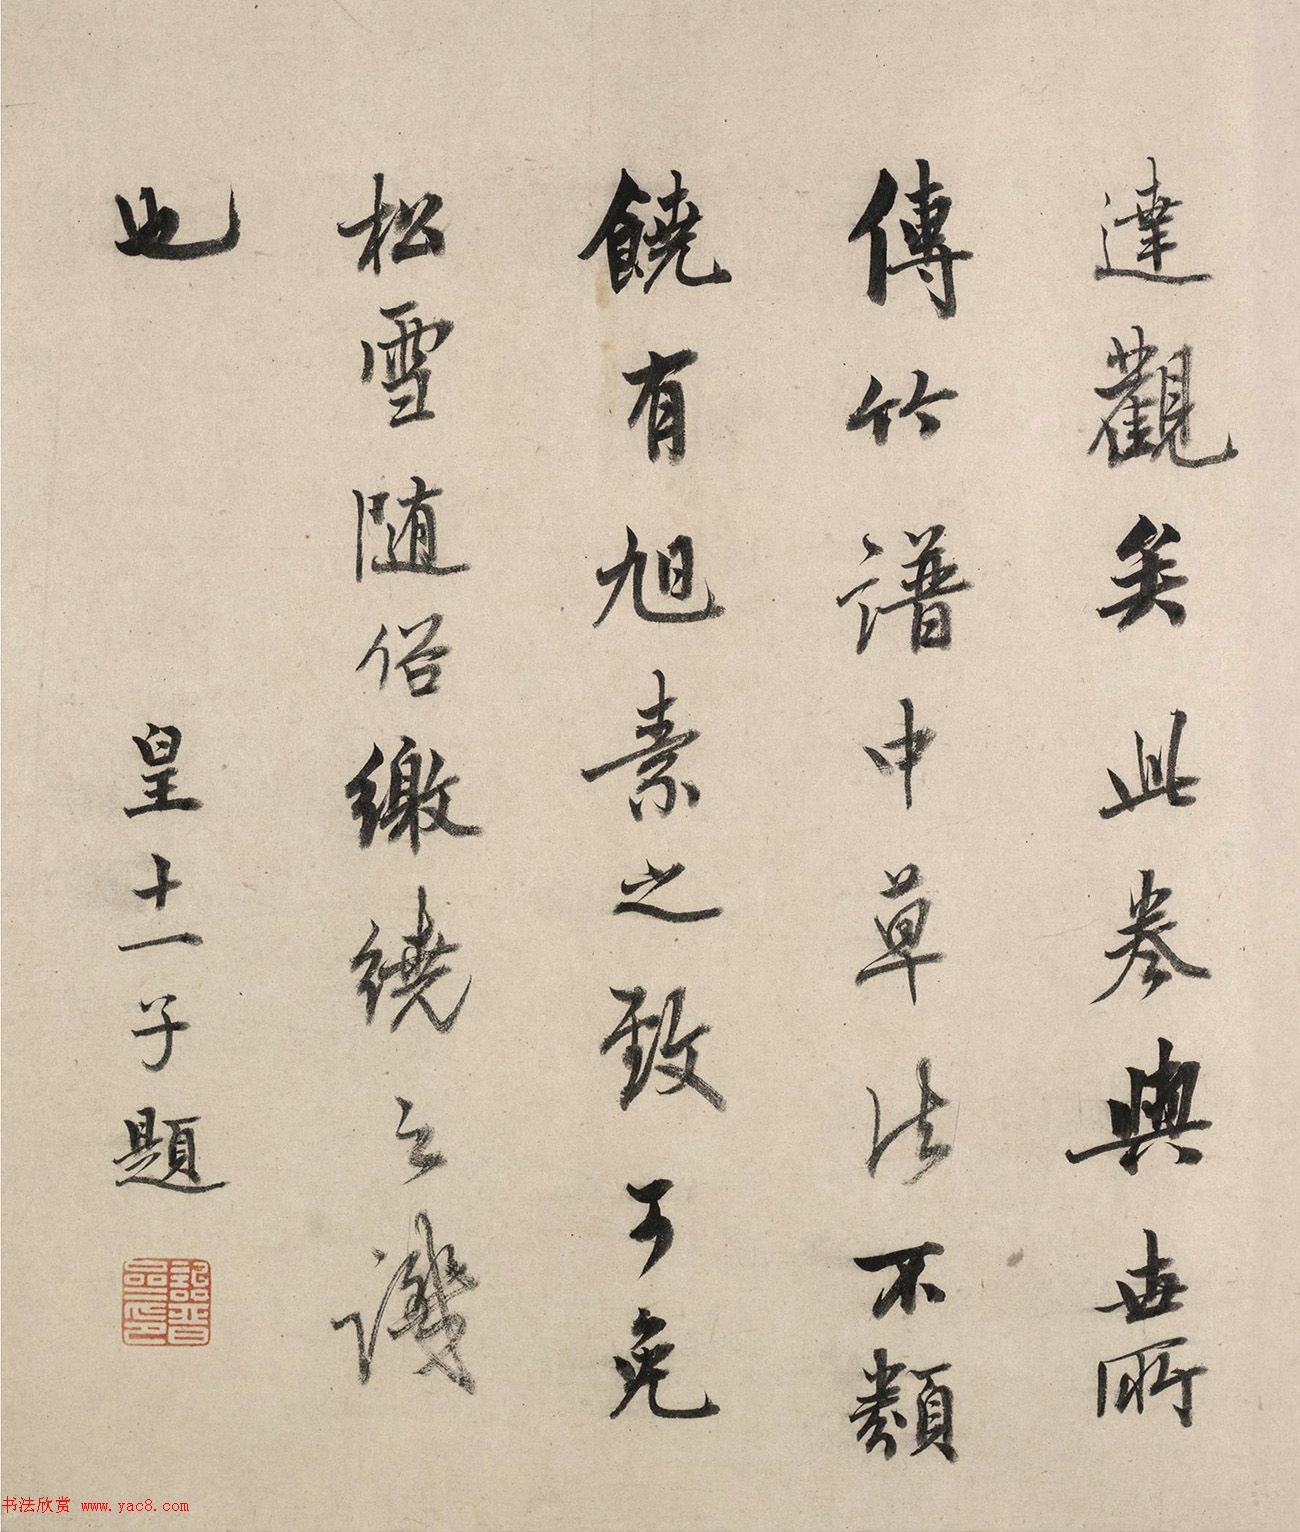 達觀矣此卷與世所
傳竹譜中草法不類
饒有旭素之致可免
松雪随俗繳繞之譏
也
皇十一子題
书法欣赏 www.yac8.com